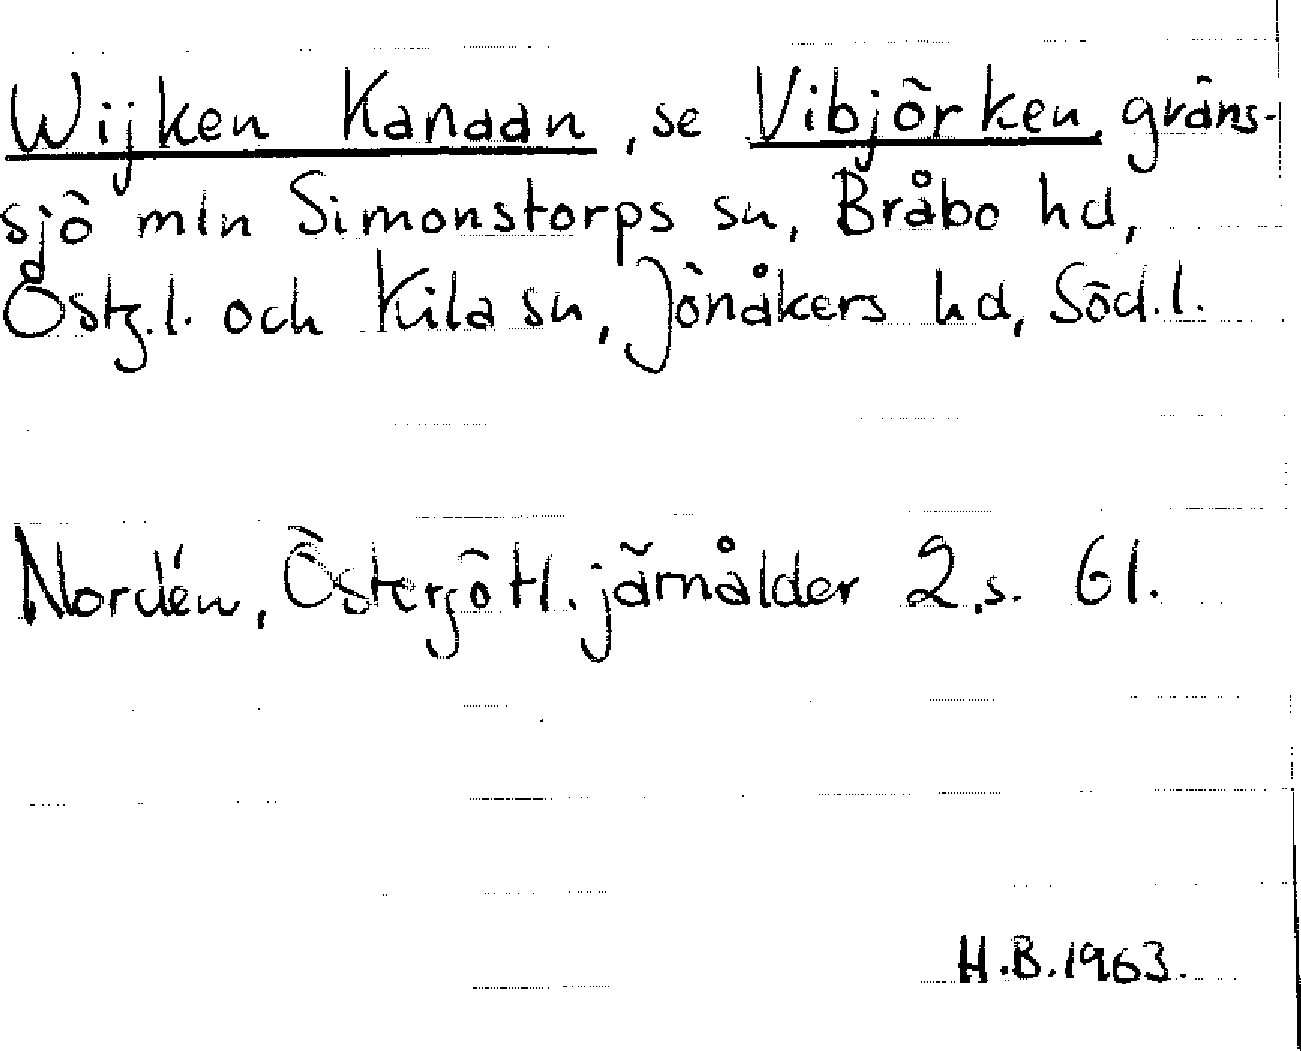 Wijken Kanaan, se Vibjörken, gräns-
sjö mln Simonstorps sn, Bråbo hd,
Östg.l. och Kila sn, Jönåkers hd, Söd.l.
Nordén, Östergötl. järnålder 2, s. 61.
H.B. 1963.